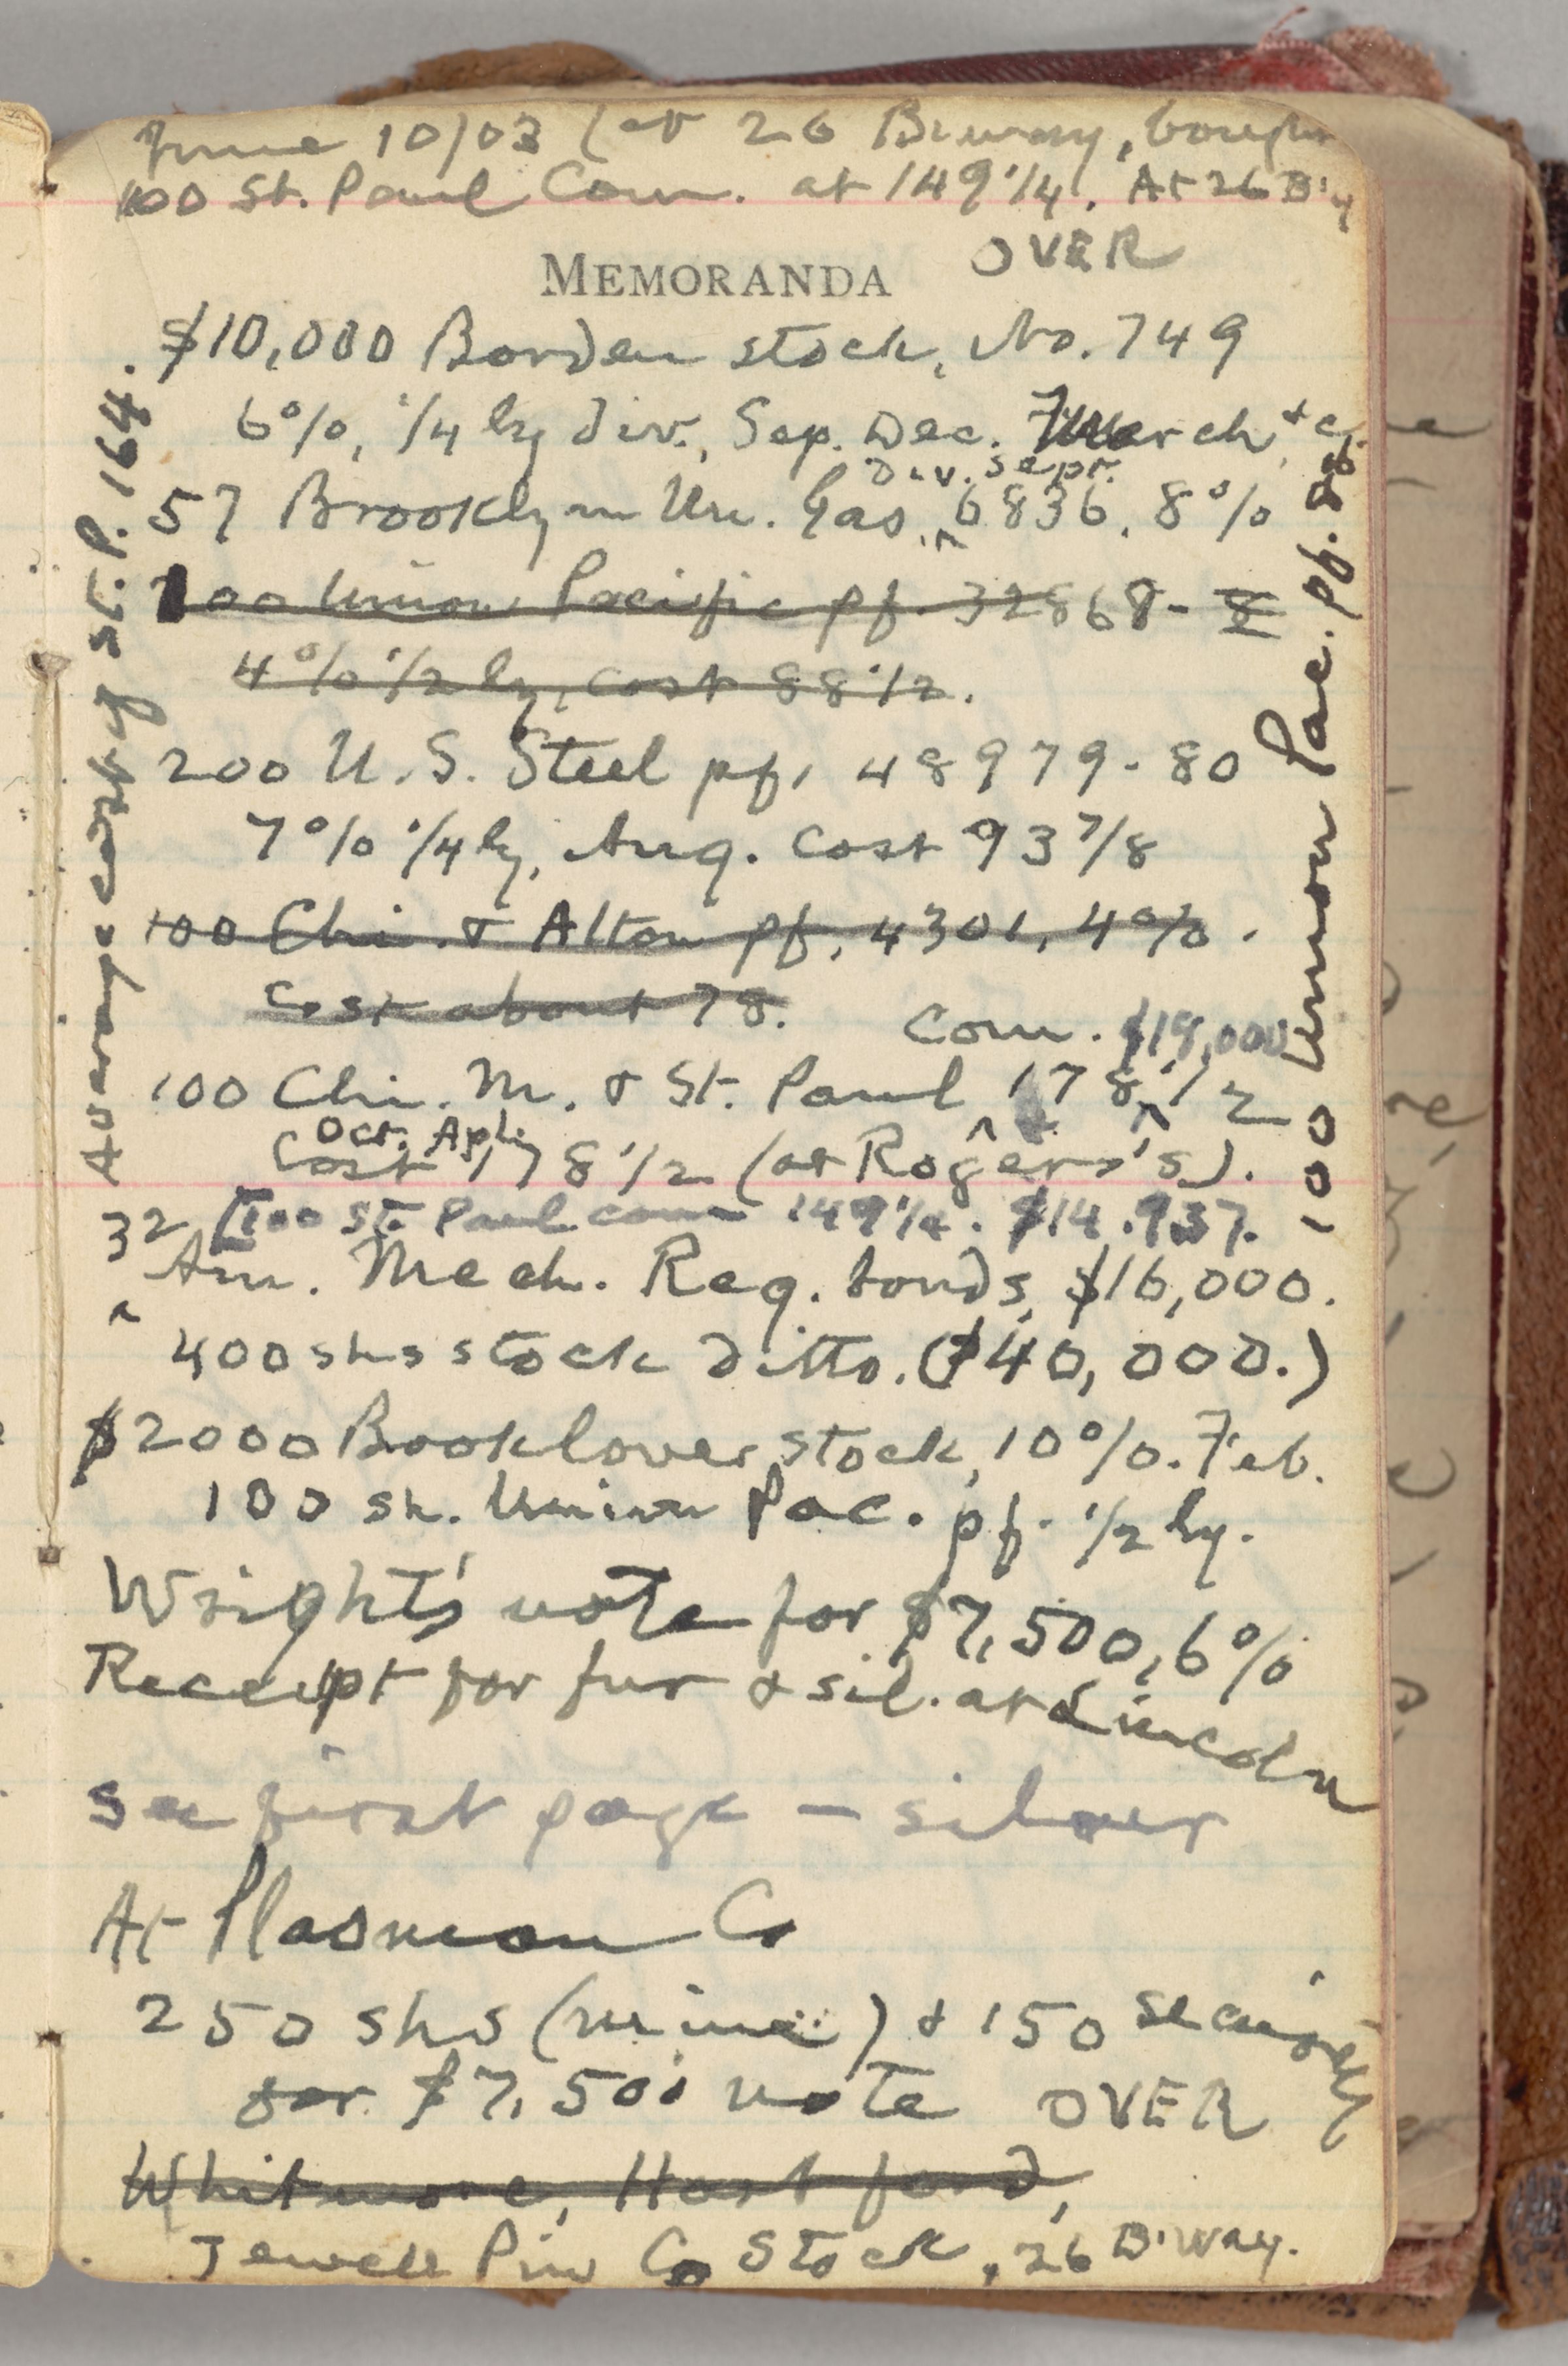 June 10/03 (at 26 B'way, bought
100 St. Paul Com. at 149 1/4. At 26 B'y
OVER
MEMORANDA
$10,000 Borden stock, No. 749
6%, 1/4 ly div., Sep. Dec. March, &c.
Div. Sept.
57 Brooklyn Un. Gas, ^ 6836, 8%
100 Union Pacific pf. 32868-8
4% 1/2 ly, cost 88 1/2.
200 U. S. Steel pf, 48979-80
7% 1/4 ly, Aug. Cost 93 7/8
100 Chi. & Alton pf, 4301, 4%.
Cost about 78.
Com. $19,000
100 Chi. M. & St. Paul 178 1/2
Oct. Apl.
Cost 178 1/2 (at Rogers's).
[100 St. Paul com 149 1/4. $14,937.
32 ^ Am. Mech. Reg. bonds, $16,000.
400 shs stock ditto. ($40,000.)
$2000 Booklover stock, 10%. Feb.
100 sh. Union Pac. pf. 1/2 ly.
Wright's note for $7,500, 6%
Receipt for fur & sil. at Lincoln
See first page — silver
At Plasmon Co
250 shs (mine) & 150 security
for $7,500 note OVER
Whitmore, Hartford,
Jewell Pin Co Stock, 26 B'way.
Average cost of St. P. 164.
100 Union Pac. pf.